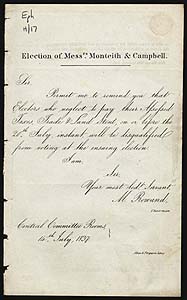 Eph
H/17
Election of Messrs. Monteith & Campbell.
Sir,
Permit me to remind you that
Electors who neglect to pay their Assessed
Taxes, Feudal & Land Rent, on or before the
20th July instant will be disqualified
from voting at the ensuing election
I am,
Sir,
Your most Obdt. Servant,
M. Rowand,
Central Committee Rooms
10th July, 1837